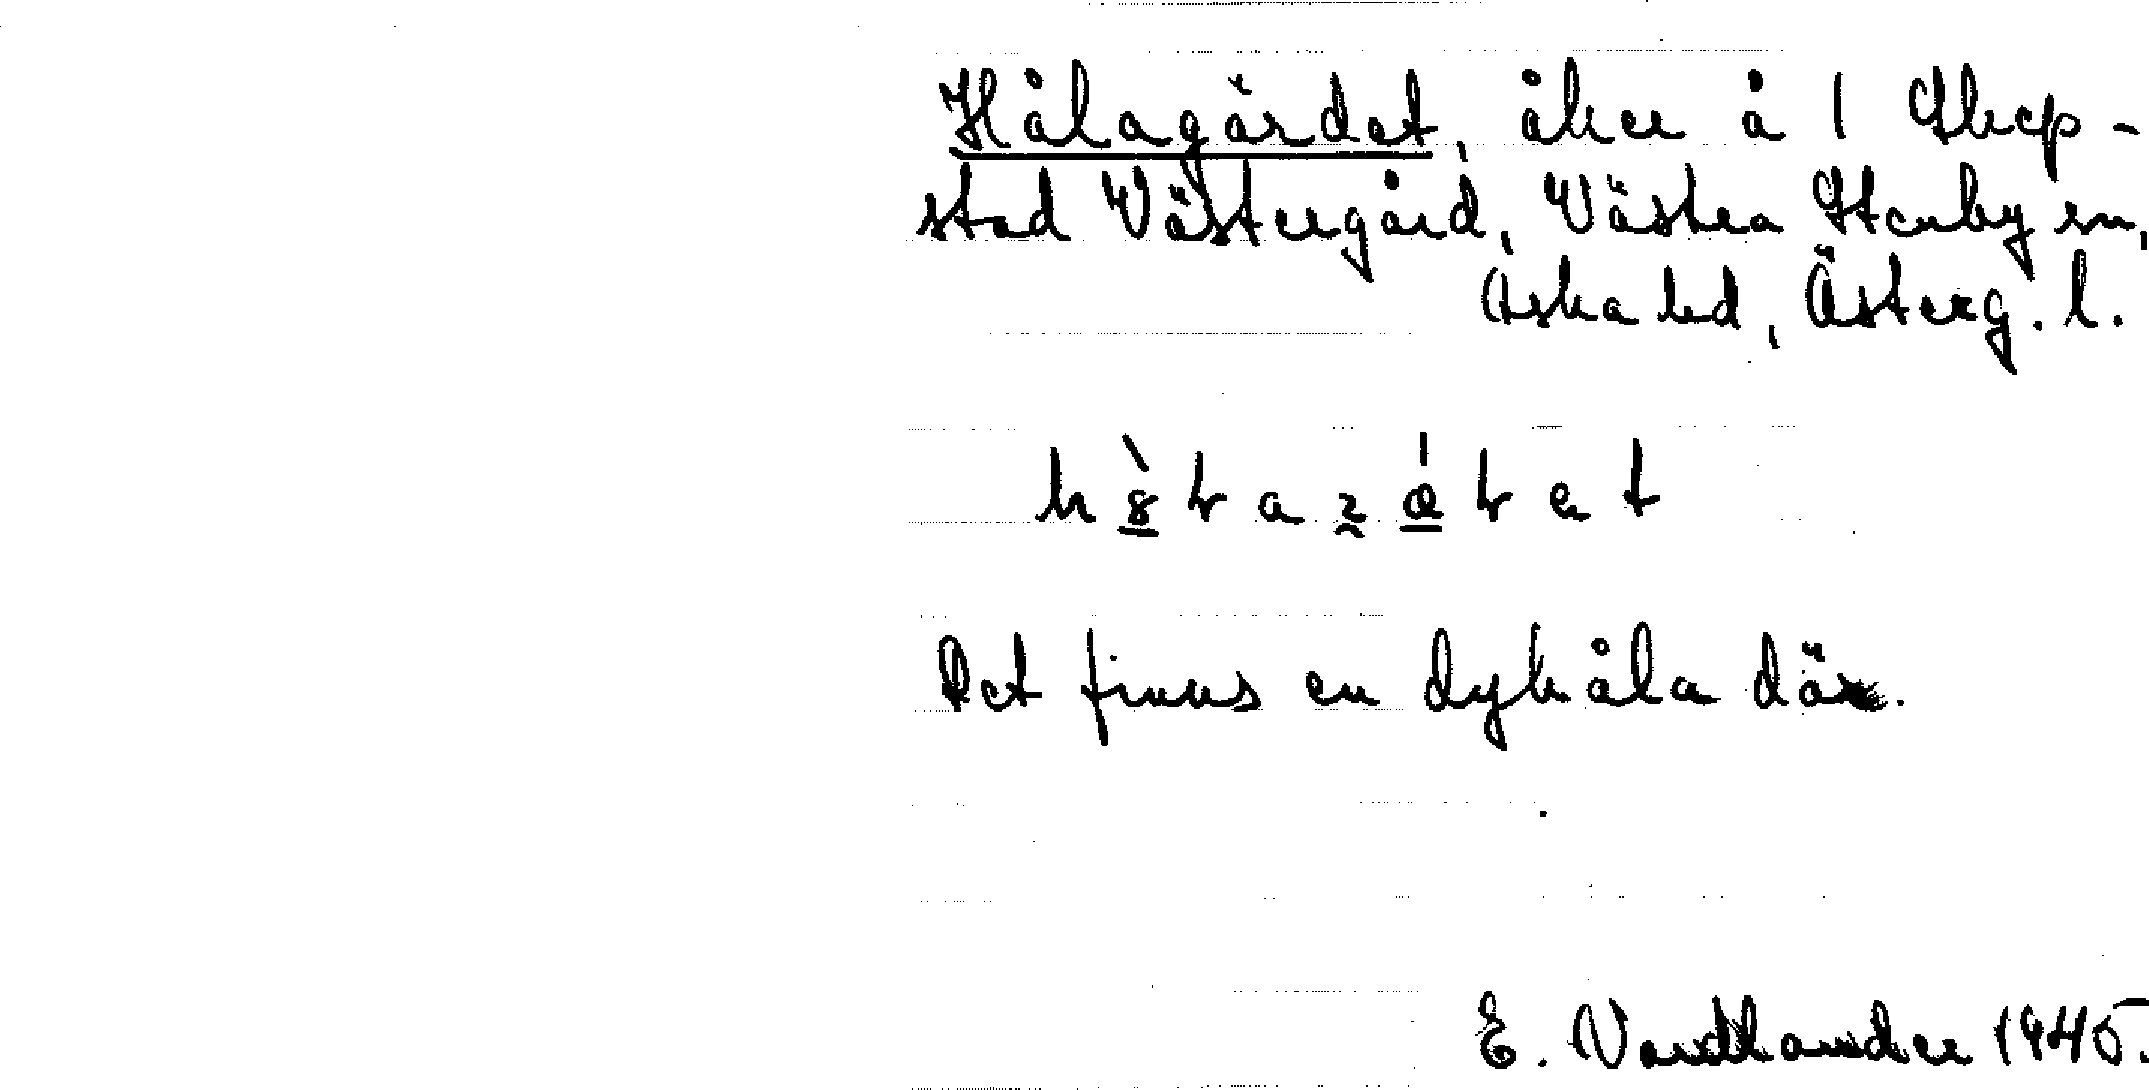 Hålagärdet, åker å 1 Skep-
stad Västergård, Västra Stenby sn,
Aska hd, Österg. l.
Det finns en dykåla där.
E. Nordlander 1945.